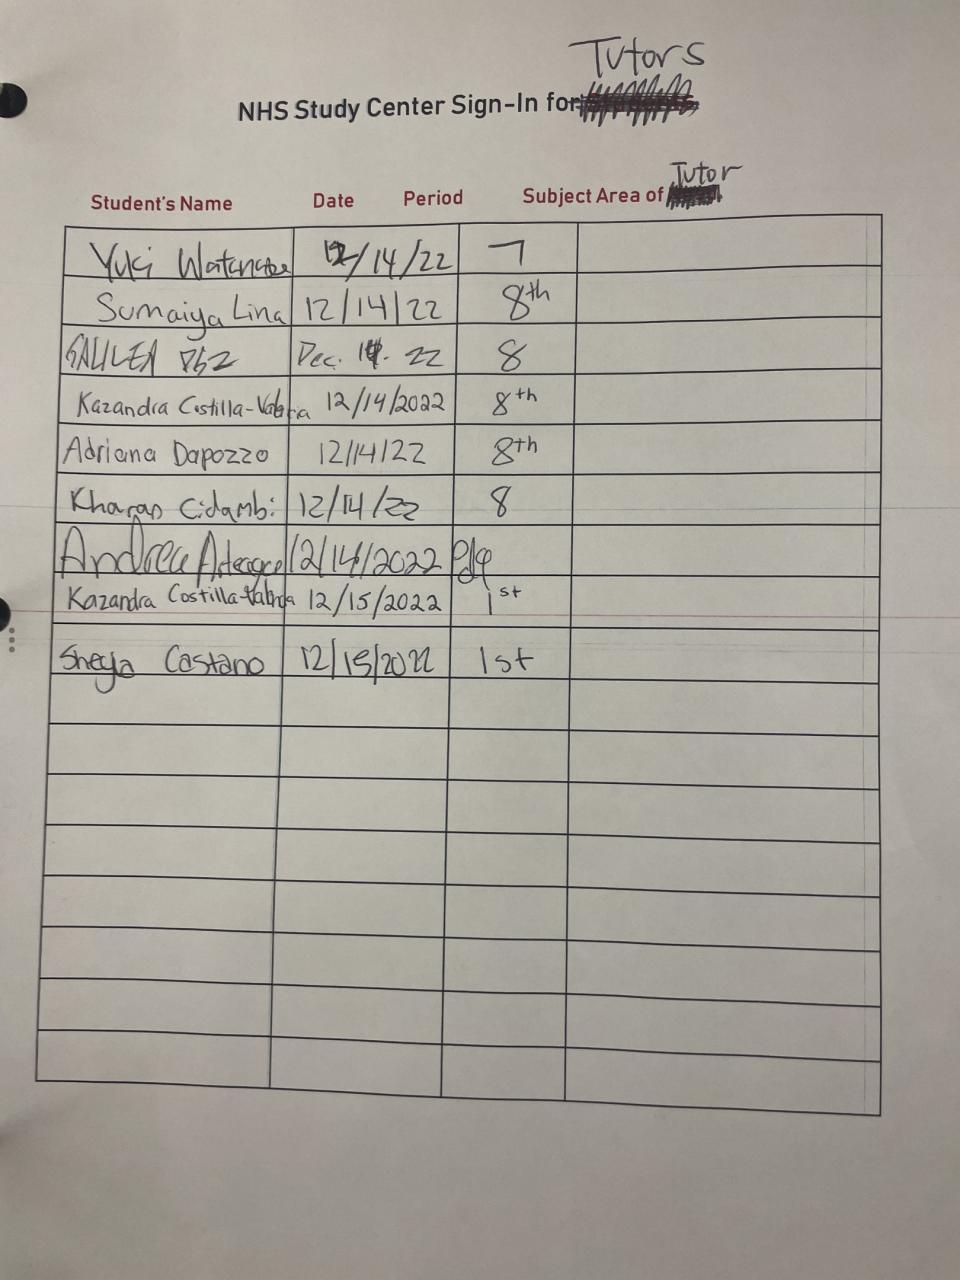 Tutors
NHS Study Center Sign-In for
Tutor
Student's Name Date Period Subject Area of
Yuki Watanabe 12/14/22 7
Sumaiya Lina 12/14/22 8th
GALILEA Dec. 14. 22 8
Kazandra Costilla-Valbria 12/14/2022 8th
Adriana Dapozzo 12/14/22 8th
Kharan Cidambi 12/14/22 8
Andrea 12/14/2022
Kazandra Costilla-Valbria 12/15/2022 1st
Sheyla Castano 12/15/2022 1st